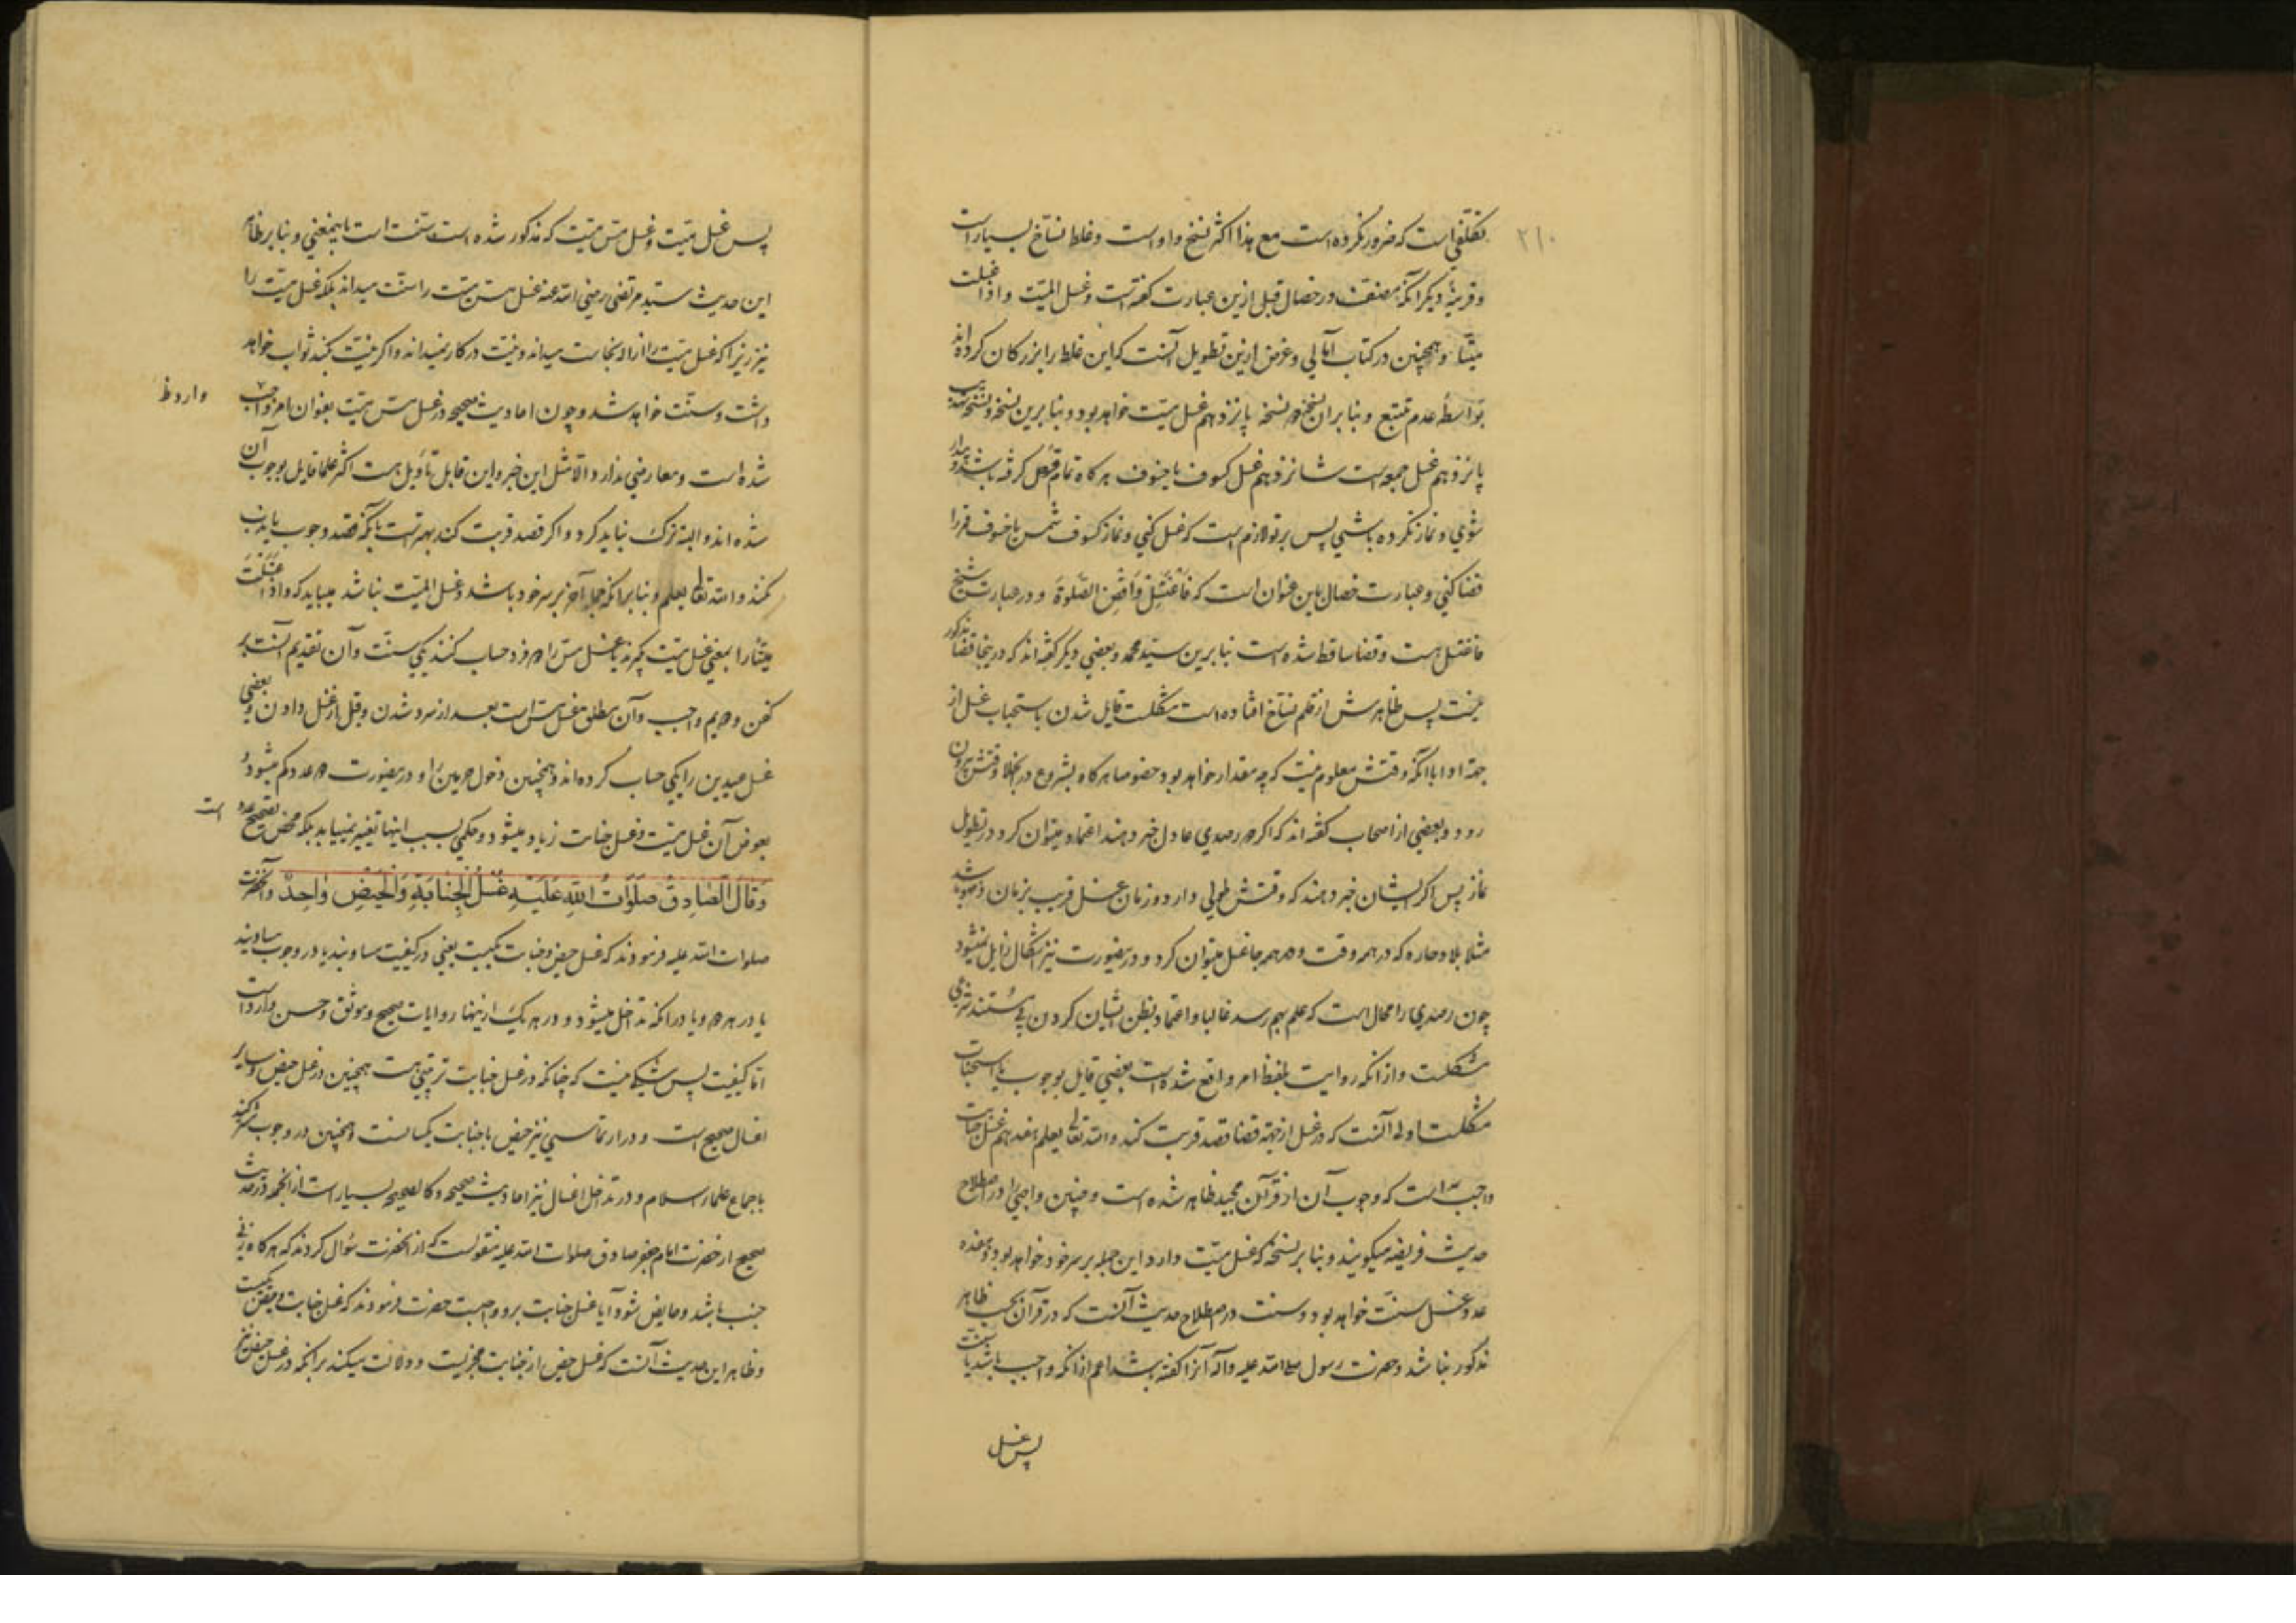 ۲۱۰
تکلّفی است که ضرور نکرده است مع هذا اکثر نسخ واو است و غلط نسّاخ بسیار است
و قرینهٔ دیگر آنکه مصنف در خصال قبل ازین عبارت گفته است و غسل المیّت و اذا غسلت
میّتا و همچنین در کتاب امالی و غرض ازین تطویل آنست که این غلط را بزرگان کرده‌اند
بواسطهٔ عدم تتبع و بنا بر آن نسخه پانزدهم غسل میّت خواهد بود و بنا برین نسخه
پانزدهم غسل جمعه است شانزدهم غسل کسوف یا خسوف هرگاه تمام قرص گرفته باشد و بیدار
شوی و نماز نکرده باشی پس بر تو لازم است که غسل کنی و نماز کسوف شمس یا خسوف قمر را
قضا کنی و عبارت خصال باین عنوان است که فَاغْتَسِل وَاقْضِ الصَّلوةَ و در عبارت شیخ
فاغتسل است و قضا ساقط شده است بنا برین سیّد محمد و بعضی دیگر گفته‌اند که در ینجا قضا مذکور
نیست پس ظاهرش از قلم نسّاخ افتاده است مشکلست قایل شدن باستحباب غسل از
جهة ادا با آنکه وقتش معلوم نیست که چه مقدار خواهد بود خصوصا هرگاه بشروع در انجلا وقتش بیرون
رود و بعضی از اصحاب گفته‌اند که اگر دو رصدی عادل خبر دهند اعتماد میتوان کرد در تطویل
نماز پس اگر ایشان خبر دهند که وقتش طولی دارد و زمان غسل قریب بزمان وضو باشد
مثلا بلاد حاره که در همه وقت و در همه جا غسل میتوان کرد و درینصورت نیز اشکال زایل نمیشود
چون رصدی را محال است که علم بهم رسد غالبا و اعتماد بظن ایشان کردن بی مستند شرعی
مشکلست و از آنکه روایت بلفظ امر واقع شده است بعضی قایل بوجوب یا استحباب
مشکلست اولی آنست که در غسل از جهة قضا قصد قربت کند و الله تعالی یعلم هفدهم غسل جنابت
واجبست که وجوب آن از قرآن مجید ظاهر شده است و چنین واجبی را در اصطلاح
حدیث فریضه میگویند و بنا بر نسخهٔ که غسل میّت دارد این جمله بر سر خود خواهد بود و هفده
عدد غسل سنّت خواهد بود و سنت در اصطلاح حدیث آنست که در قرآن بحسب ظاهر
مذکور نباشد و حضرت رسول صلی الله علیه و آله آنرا گفته باشد اعم از آنکه واجب باشد یا سنّت
پس غسل
پس غسل میّت و غسل مسّ میّت که مذکور شده است سنّت است باینمعنی و بنا بر ظاهر
این حدیث سیّد مرتضی رضی الله عنه غسل مسّ میّت را سنّت میداند بلکه غسل میّت را
نیز زیرا که غسل میّت را ازالهٔ نجاست میداند و نیّت در کار نمیداند و اگر نیّت کند ثواب خواهد
داشت و سنّت خواهد شد و چون احادیث صحیحه در غسل مسّ میّت بعنوان امر و واجب
وارد ظ
شده است و معارضی ندارد الا مثل این خبر و این قابل تأویل است اکثر علما قایل بوجوب آن
شده‌اند و البته ترک نباید کرد و اگر قصد قربت کند بهتر است بآنکه قصد وجوب یا ندب
نکند و الله تعالی یعلم و بنا بر آنکه جملهٔ آخر بر سر خود باشد و غسل المیّت نباشد میباید که و اذا غسّلت
میّتا را بمعنی غسل میّت گیرند یا غسل مسّ را دو فرد حساب کنند یکی سنّت و آن تقدیم آنست بر
کفن و دویم واجب و آن مطلق غسل مسّ است بعد از سرد شدن و قبل از غسل دادن و بعضی
غسل عیدین را یکی حساب کرده‌اند و همچنین دخول حرمین را و درینصورت دو عدد کم میشود و
بعوض آن غسل میّت و غسل جنابت زیاد میشود و حکمی بسبب اینها تغییر نمییابد بلکه محض تصحیح عدد
است
وَقَالَ الصَّادِقُ صَلَوَاتُ اللهِ عَلَيْهِ غُسْلُ الْجَنَابَةِ وَالْحَيْضِ وَاحِدٌ و آنحضرت
صلوات الله علیه فرمودند که غسل حیض و جنابت یکیست یعنی در کیفیت مساویند یا در وجوب مساویند
یا در هر دو و یا در آنکه تداخل میشود و در هر یک ازینها روایات صحیح و موثق و حسن وارد است
امّا کیفیت پس شکی نیست که چنانکه در غسل جنابت ترتیبی هست همچنین در غسل حیض و سایر
اغسال صحیح است و در ارتماسی نیز حیض با جنابت یکسانست و همچنین در وجوب شریکند
باجماع علماء اسلام و در تداخل اغسال نیز احادیث صحیحه و کالصحیحه بسیار است از آنجمله در حدیث
صحیح از حضرت امام جعفر صادق صلوات الله علیه منقولست که از آنحضرت سؤال کردند که هرگاه زنی
جنب باشد و حایض شود آیا غسل جنابت برو واجبست حضرت فرمودند که غسل جنابت و حیض یکیست
و ظاهر این حدیث آنست که غسل حیض از جنابت مجزیست و دلالت میکند بر آنکه در غسل حیض نیز